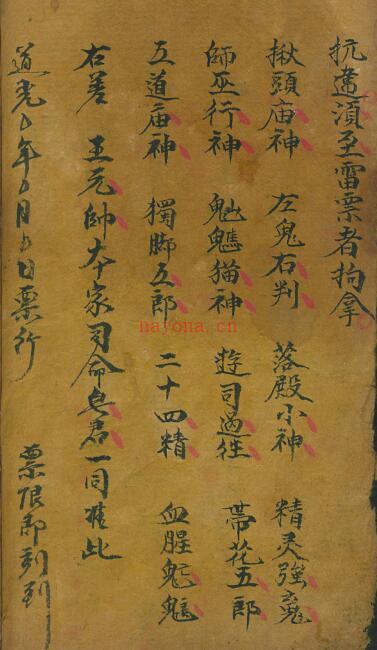 抗違須至雷票者拘拿
揪頭庙神 左鬼右判 落殿小神 精灵強鬼
師巫行神 魈魕猫神 遊司過往 帶花五郎
五道庙神 獨脚五郎 二十四精 血腥
右差 王元帥 本家司命皂君一同 准此
道光 年 月 日票行 票限即到
nayona.cn